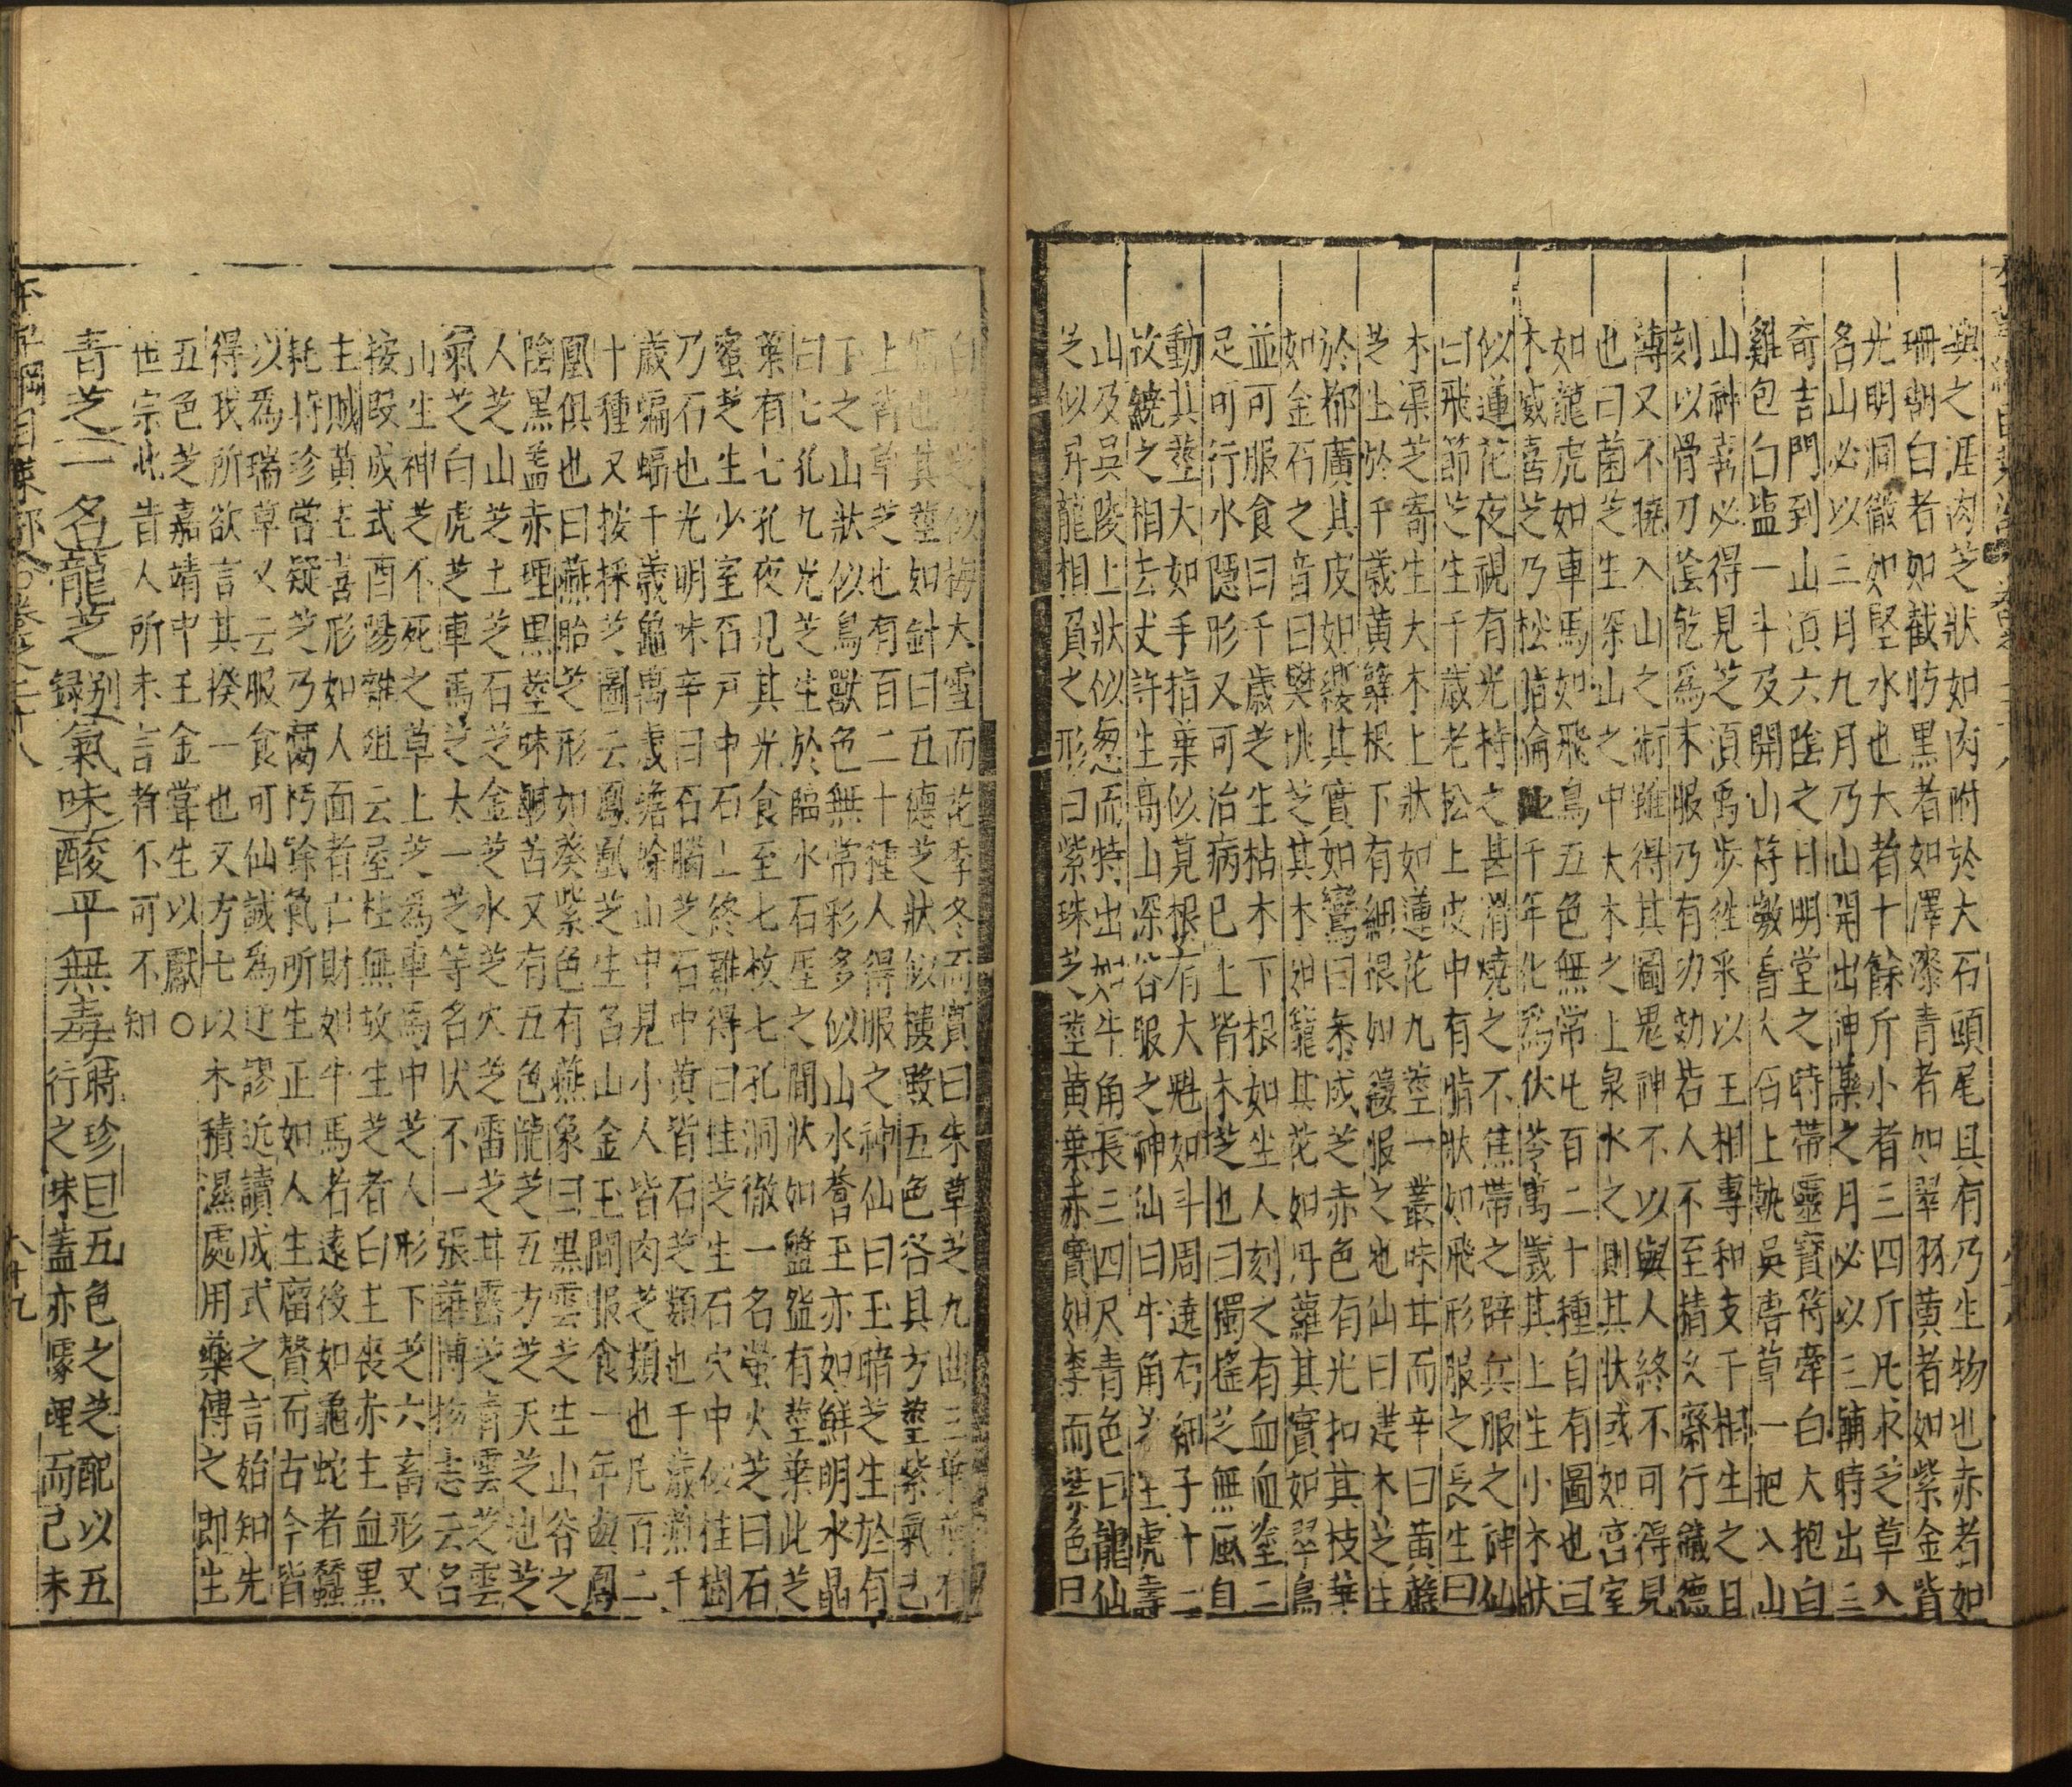 與之涯肉芝狀如肉附於大石頭尾具有乃生物也赤者如
珊瑚白者如截肪黑者如澤漆青者如翠羽黄者如紫金皆
光明洞徹如堅水也大者十餘斤小者三四斤凡求芝草入
名山必以三月九月乃山開出神藥之月必以三輔時出三
奇吉門到山須六陰之日明堂之時帶靈寳符牽白犬抱白
雞包白鹽一斗及開山符檄着大石上執吳唐草一把入山
山神喜必得見芝須禹步徃采以王相專和支干相生之日
刻以骨刀陰乾爲末服乃有功効若人不至精久齋行穢德
薄又不曉入山之術雖得其圖鬼神不以與人終不可得見
也曰菌芝生深山之中大木之上泉水之側其狀或如宮室
如龍虎如車馬如飛鳥五色無常凡百二十種自有圖也曰
木威喜芝乃松脂淪地千年化爲伏苓萬歲其上生小木狀
似蓮花夜視有光持之甚滑燒之不焦帶之辟兵服之神仙
曰飛節芝生千歲老松上皮中有脂狀如飛形服之長生曰
木渠芝寄生大木上狀如蓮花九莖一叢味甘而辛曰黄蘗
芝生於千歲黄蘗根下有細根如縷服之地仙曰建木芝生
於都廣其皮如纓其實如鸞曰參成芝赤色有光扣其枝葉
如金石之音曰樊桃芝其木如籠其花如丹蘿其實如翠鳥
並可服食曰千歲芝生枯木下根如坐人刻之有血血塗二
足可行水隱形又可治病已上皆木芝也曰獨搖芝無風自
動其莖大如手指葉似莧根有大魁如斗周遶有細子十二
故繞之相去丈許生高山深谷服之神仙曰牛角芝生虎壽
山及吳陵上狀似葱而特出如牛角長三四尺青色曰龍仙
芝似昇龍相負之形曰紫珠芝莖黄葉赤實如李而紫色曰
白符芝似梅大雪而花季冬而實曰朱草芝九曲三葉葉有
實也其莖如針曰五德芝狀似樓殿五色各具方莖紫氣已
上皆草芝也有百二十種人得服之神仙曰玉脂芝生於有
玉之山狀似鳥獸色無常彩多似山水蒼玉亦如鮮明水晶
曰七孔九光芝生於臨水石厓之間狀如盤盌有莖葉此芝
葉有七孔夜見其光食至七枚七孔洞徹一名螢火芝曰石
蜜芝生少室石戸中石上終難得曰桂芝生石穴中似桂樹
乃石也光明味辛曰石腦芝石中黄皆石芝類也千歲燕千
歲蝙蝠千歲龜萬歲蟾蜍山中見小人皆肉芝類也凡百二
十種又按採芝圖云鳳凰芝生名山金玉間服食一年與鳳
凰俱也曰燕胎芝形如葵紫色有燕象曰黑雲芝生山谷之
陰黑蓋赤理黑莖味鹹苦又有五色龍芝五方芝天芝地芝
人芝山芝土芝石芝金芝水芝火芝雷芝甘露芝青雲芝雲
氣芝白虎芝車馬芝太一芝等名狀不一張華博物志云名
山生神芝不死之草上芝爲車馬中芝人形下芝六畜形又
按段成式酉陽雜俎云屋柱無故生芝者白主喪赤主血黑
主賊黄主喜形如人面者亡財如牛馬若遠役如龜蛇者蠶
耗時珍嘗疑芝乃腐朽餘氣所生正如人生瘤贅而古今皆
以爲瑞草又云服食可仙誠爲迂謬近讀成式之言始知先
得我所欲言其揆一也又方士以木積濕處用藥傅之即生
五色芝嘉靖中王金嘗生以獻〇
世宗此昔人所未言者不可不知
青芝一名龍芝別錄氣味酸平無毒時珍曰五色之芝配以五
行之味蓋亦據理而已未